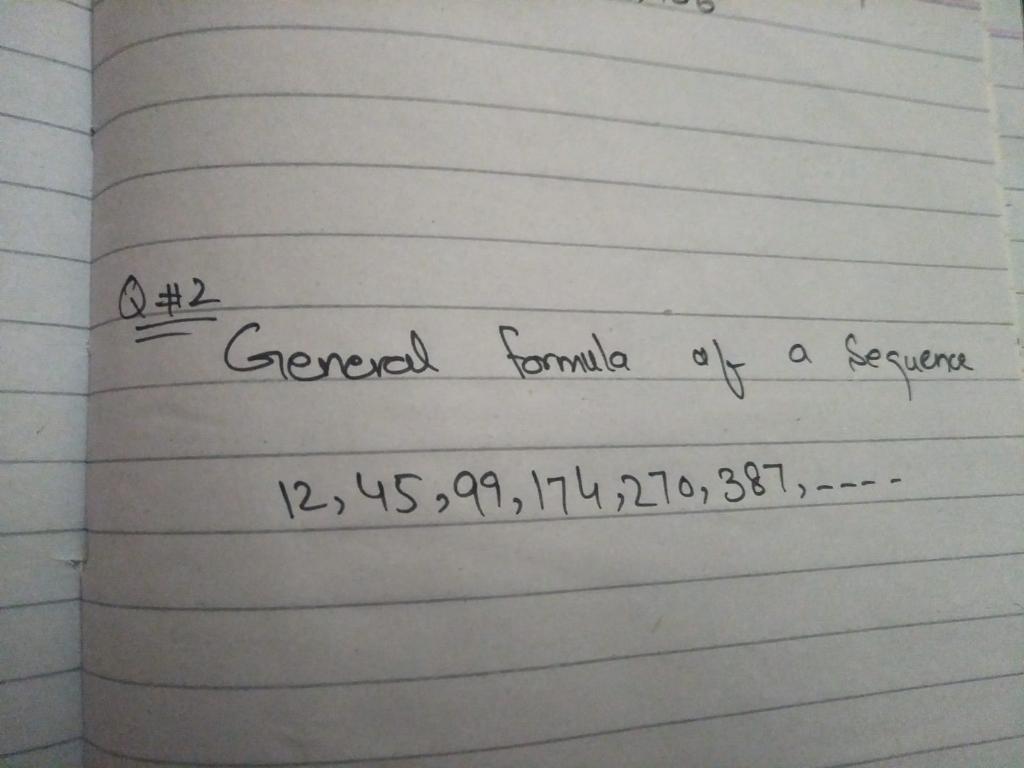 Q #2
General formula of a Sequence
12, 45, 99, 174, 270, 387, ----